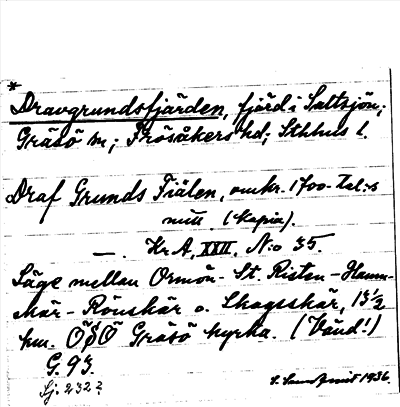 *
Dravgrundsfjärden, fjärd i Saltsjön;
Gräsö sn; Frösåkers hd; Sthlms l.
Draf Grunds Fiälen, omkr. 1700-tal:s
mitt. (Kopia).
—. Kr. A, XXII, N:o 35.
Läge mellan Ormön - St. Risten - Hamn-
skär - Rönskär o. Skogsskär, 13 1/2
km. OSO Gräsö kyrka. (Vänd!)
G. 93.
Sj. 232 ?
1936.